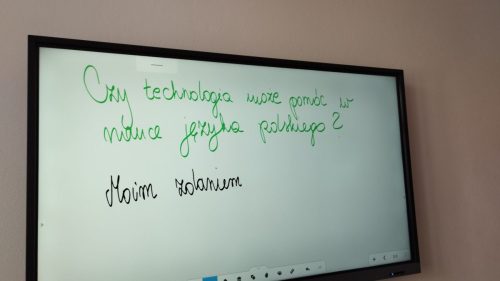 Czy technologia może pomóc w
nauce języka polskiego?
Moim zdaniem